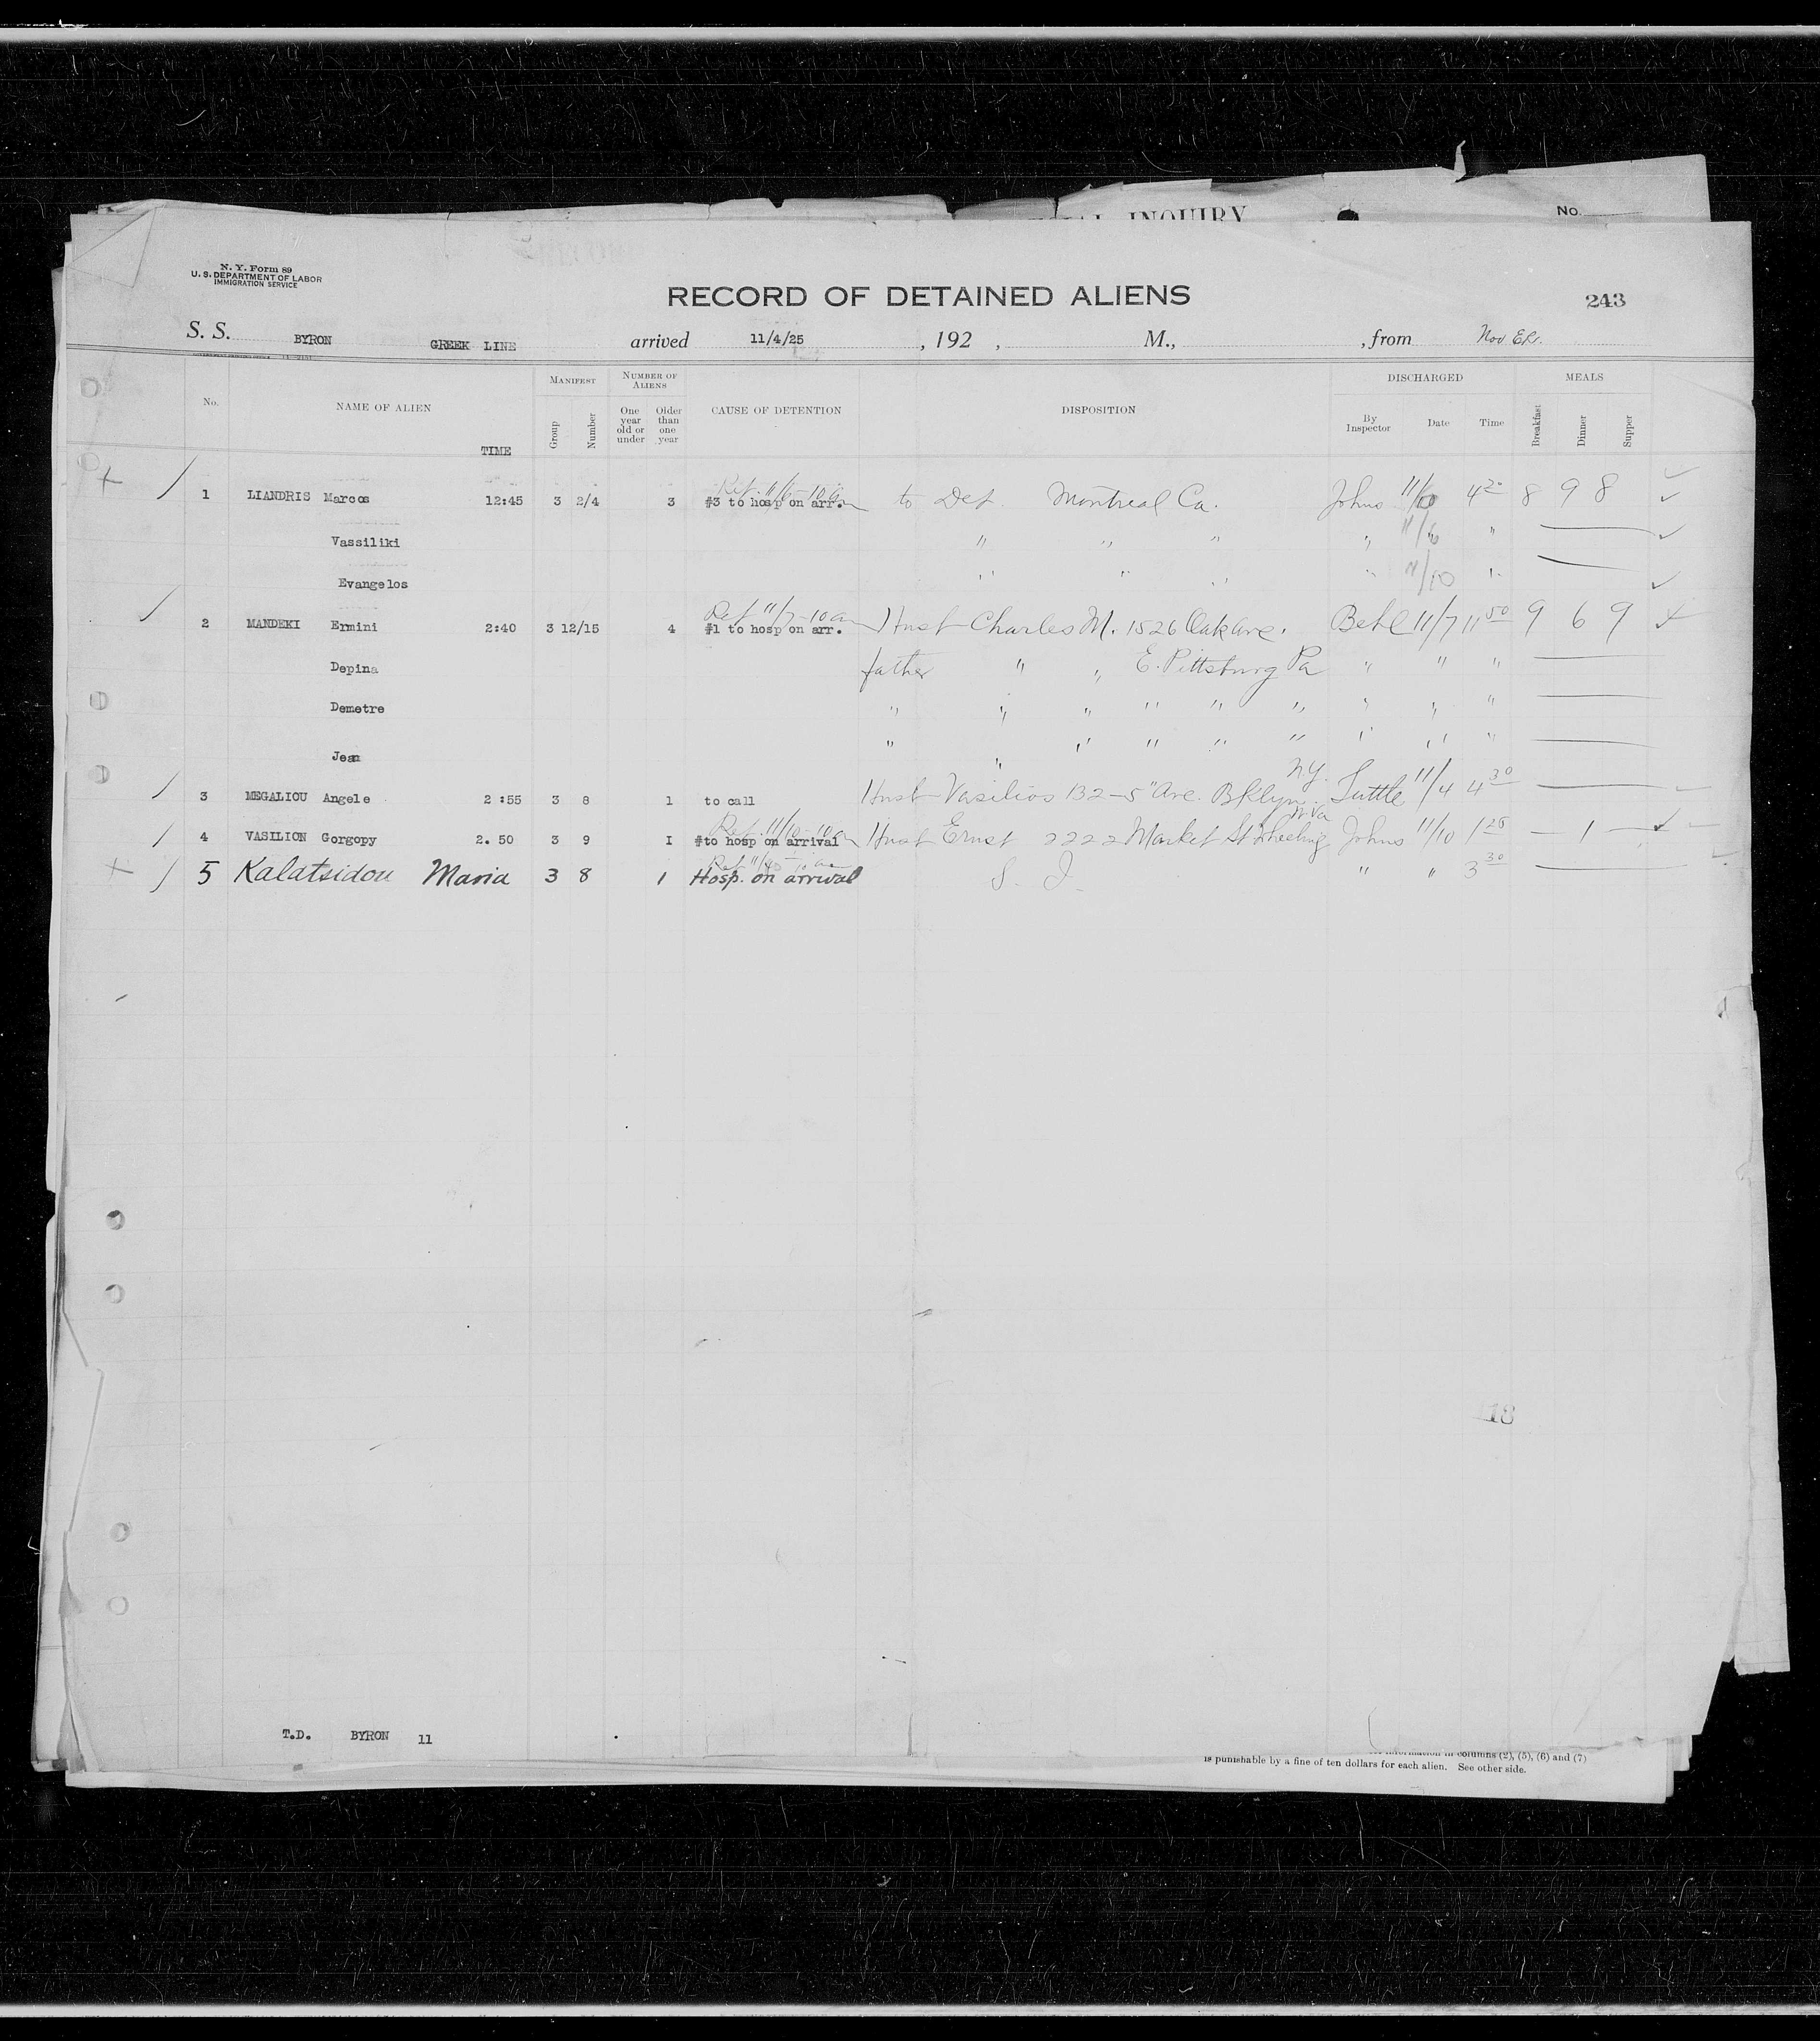 INQUIRY
No.
N. Y. Form 89
U. S. DEPARTMENT OF LABOR
IMMIGRATION SERVICE
RECORD OF DETAINED ALIENS
243
S. S. BYRON GREEK LINE arrived 11/4/25, 192 , M., , from
No. NAME OF ALIEN TIME MANIFEST Group Number NUMBER OF ALIENS One year old or under Older than one year CAUSE OF DETENTION DISPOSITION DISCHARGED By Inspector Date Time MEALS Breakfast Dinner Supper
Ret. 11/6 - 10 a
1 LIANDRIS Marcos 12:45 3 2/4 3 #3 to hosp on arr. to Det. Montreal Ca. Johns 11/10 4 20 8 9 8
Vassiliki " " " " 11/6 "
Evangelos " " " " 11/10 "
Ret 11/7 - 10 a
2 MANDEKI Ermini 2:40 3 12/15 4 #1 to hosp on arr. Husb Charles M. 1526 Oak Ave. Behl 11/7 11 50 9 6 9
Depina father " " E. Pittsburg Pa " " "
Demetre " " " " " " " " "
Jean " " " " " " " " "
N.Y.
3 MEGALIOU Angele 2:55 3 8 1 to call Husb Vasilios 132-5" Ave. Bklyn. Tuttle 11/4 4 30
Ret. 11/10 - 10 a W. Va
4 VASILION Gorgopy 2.50 3 9 I #to hosp on arrival Husb Ernst 2222 Market St Wheeling Johns 11/10 1 25 — 1 —
Ret 11/10 - 10 a
5 Kalatsidou Maria 3 8 1 Hosp. on arrival S. I. " " 3 30
18
T.D. BYRON 11
information in columns (2), (5), (6) and (7)
is punishable by a fine of ten dollars for each alien. See other side.